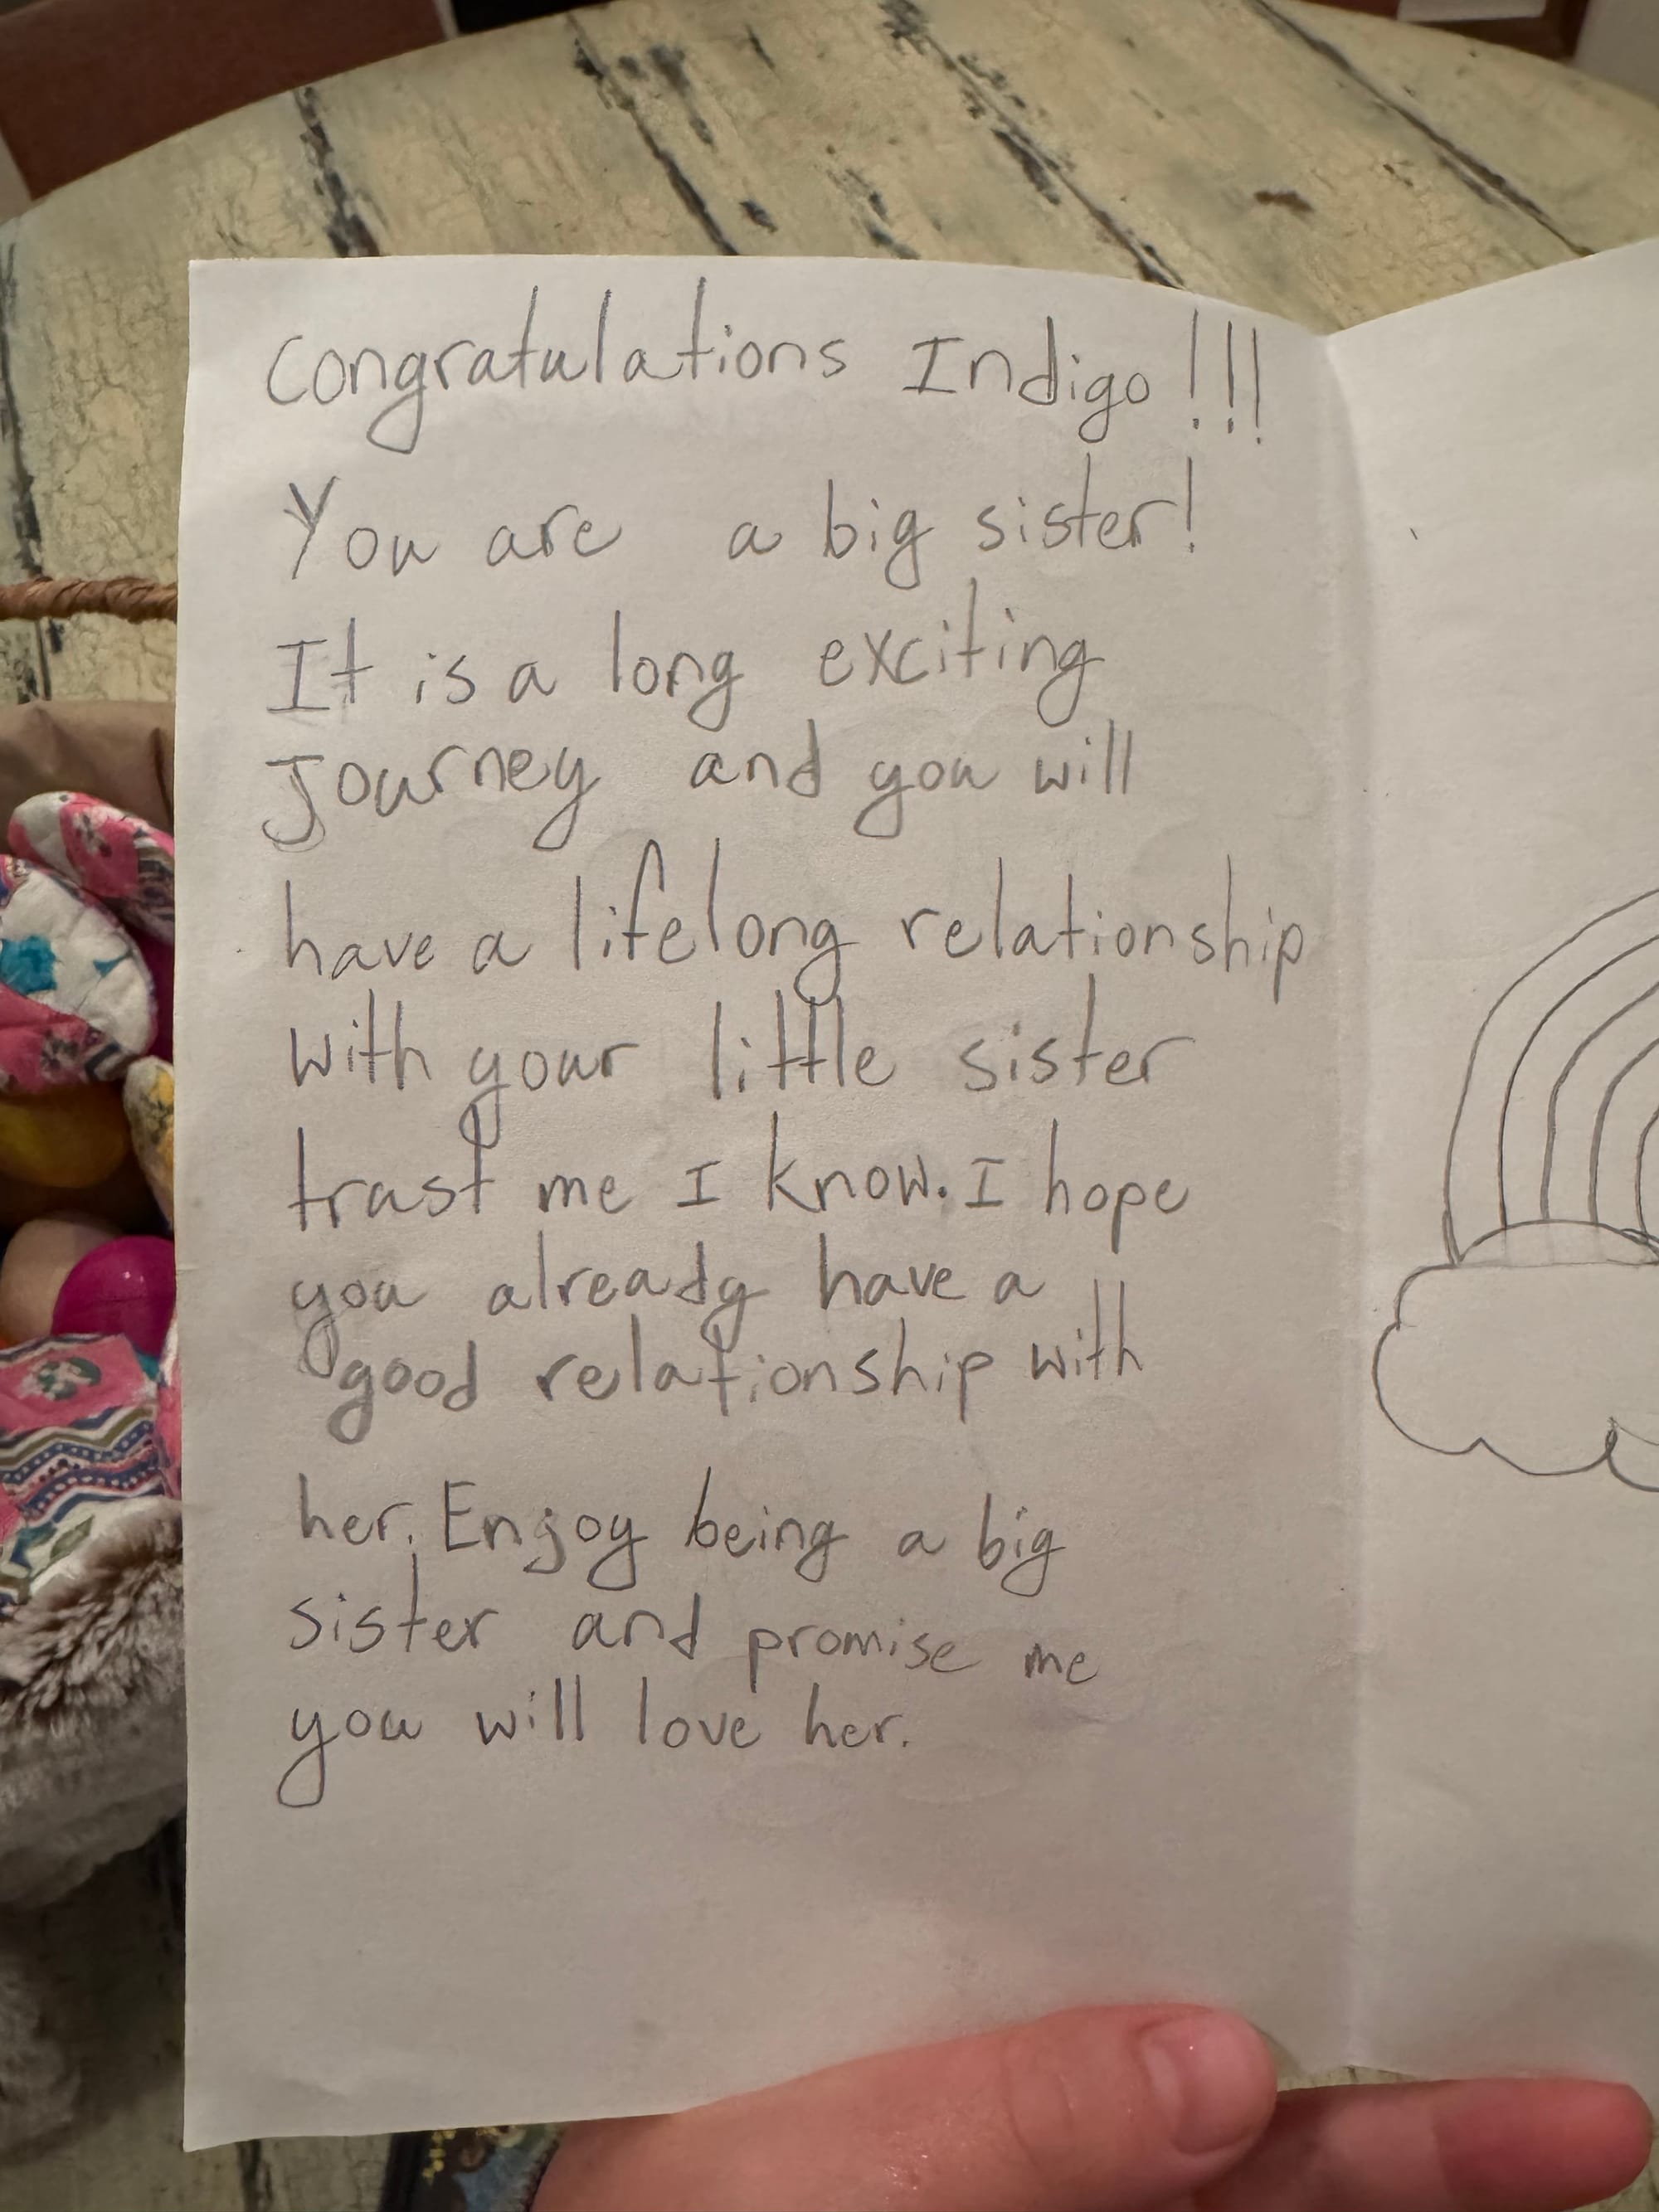 Congratulations Indigo!!!
You are a big sister!
It is a long exciting
Journey and you will
have a lifelong relationship
with your little sister
trust me I know. I hope
you already have a
good relationship with
her. Enjoy being a big
sister and promise me
you will love her.